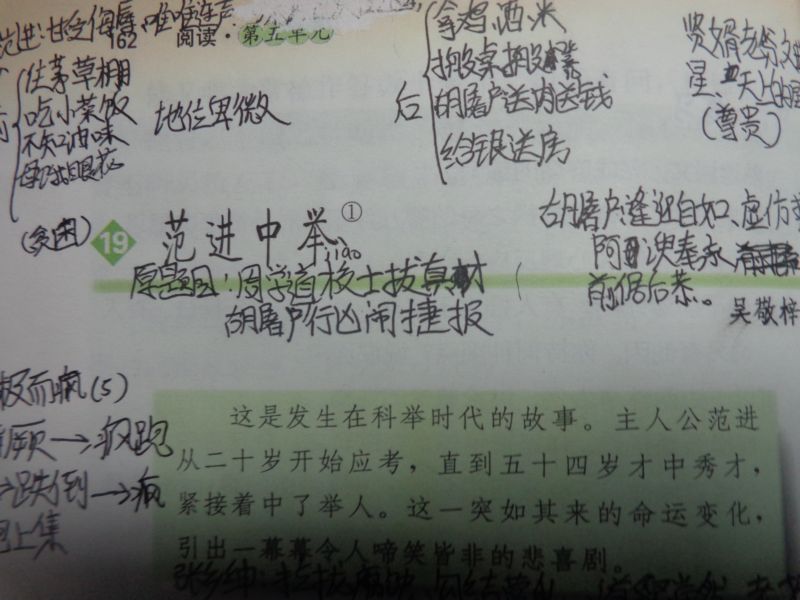 范进:甘受侮辱,唯唯连声
162 阅读·第五单元
住茅草棚
吃小菜饭
不知油味
地位卑微
(贫困)
后
拿鸡、酒、米
搬桌搬
胡屠户送肉送钱
给银送房
贤婿
星、天上的
(尊贵)
胡屠户:逢迎自如、虚伪
阿谀奉承
前倨后恭。
19 范进中举①
原题目:周学道校士拔真材
胡屠户行凶闹捷报
吴敬梓
极而疯(5)
→疯跑
→跌倒→疯
上集
这是发生在科举时代的故事。主人公范进
从二十岁开始应考,直到五十四岁才中秀才,
紧接着中了举人。这一突如其来的命运变化,
引出一幕幕令人啼笑皆非的悲喜剧。
张乡绅: